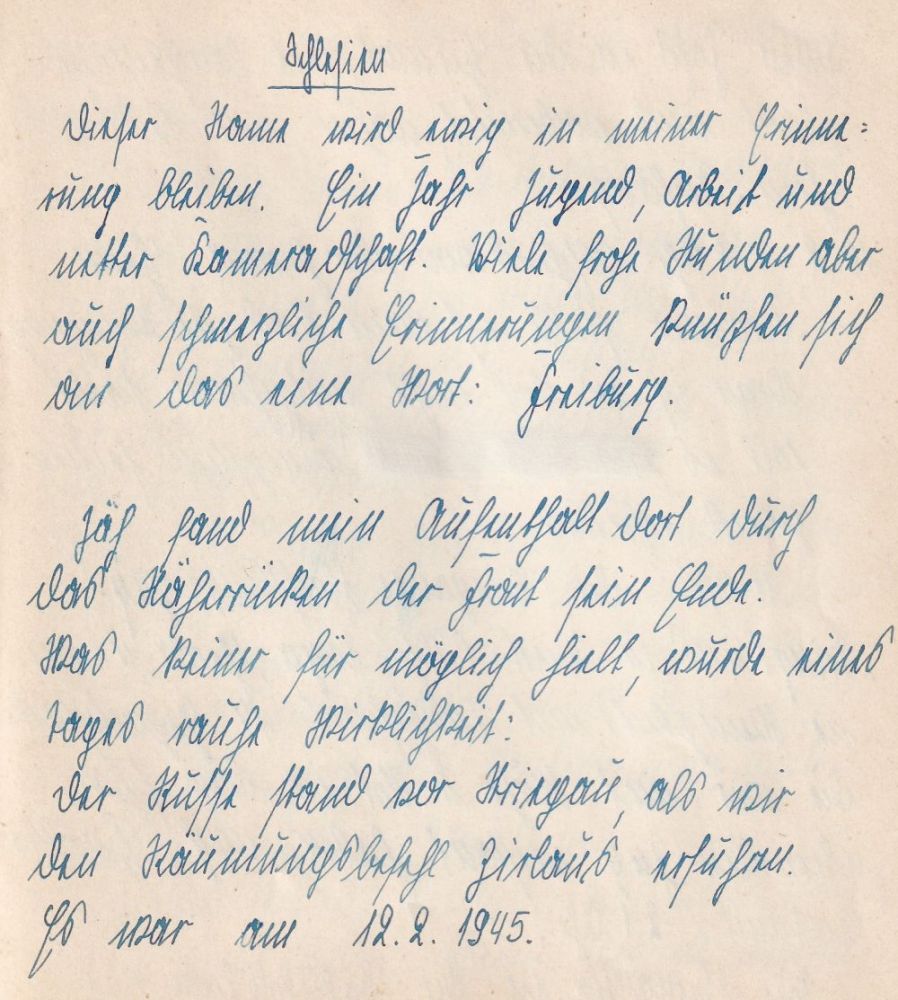 Schlesien
Dieser Name wird ewig in meiner Erinne=
rung bleiben. Ein Jahr Jugend, Arbeit und
netter Kameradschaft. Viele frohe Stunden aber
auch schmerzliche Erinnerungen knüpfen sich
an das eine Wort: Freiburg.
Jäh fand mein Aufenthalt dort durch
das Näherrücken der Front sein Ende.
Was keiner für möglich hielt, wurde eines
Tages rauhe Wirklichkeit:
Der Russe stand vor Striegau, als wir
den Räumungsbefehl Zirlaus erfuhren.
Es war am 12. 2. 1945.